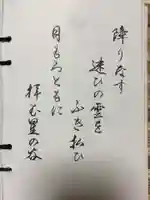 障りなす
迷ひの雲を
ふき払ひ
月もろともに
拝む星の谷